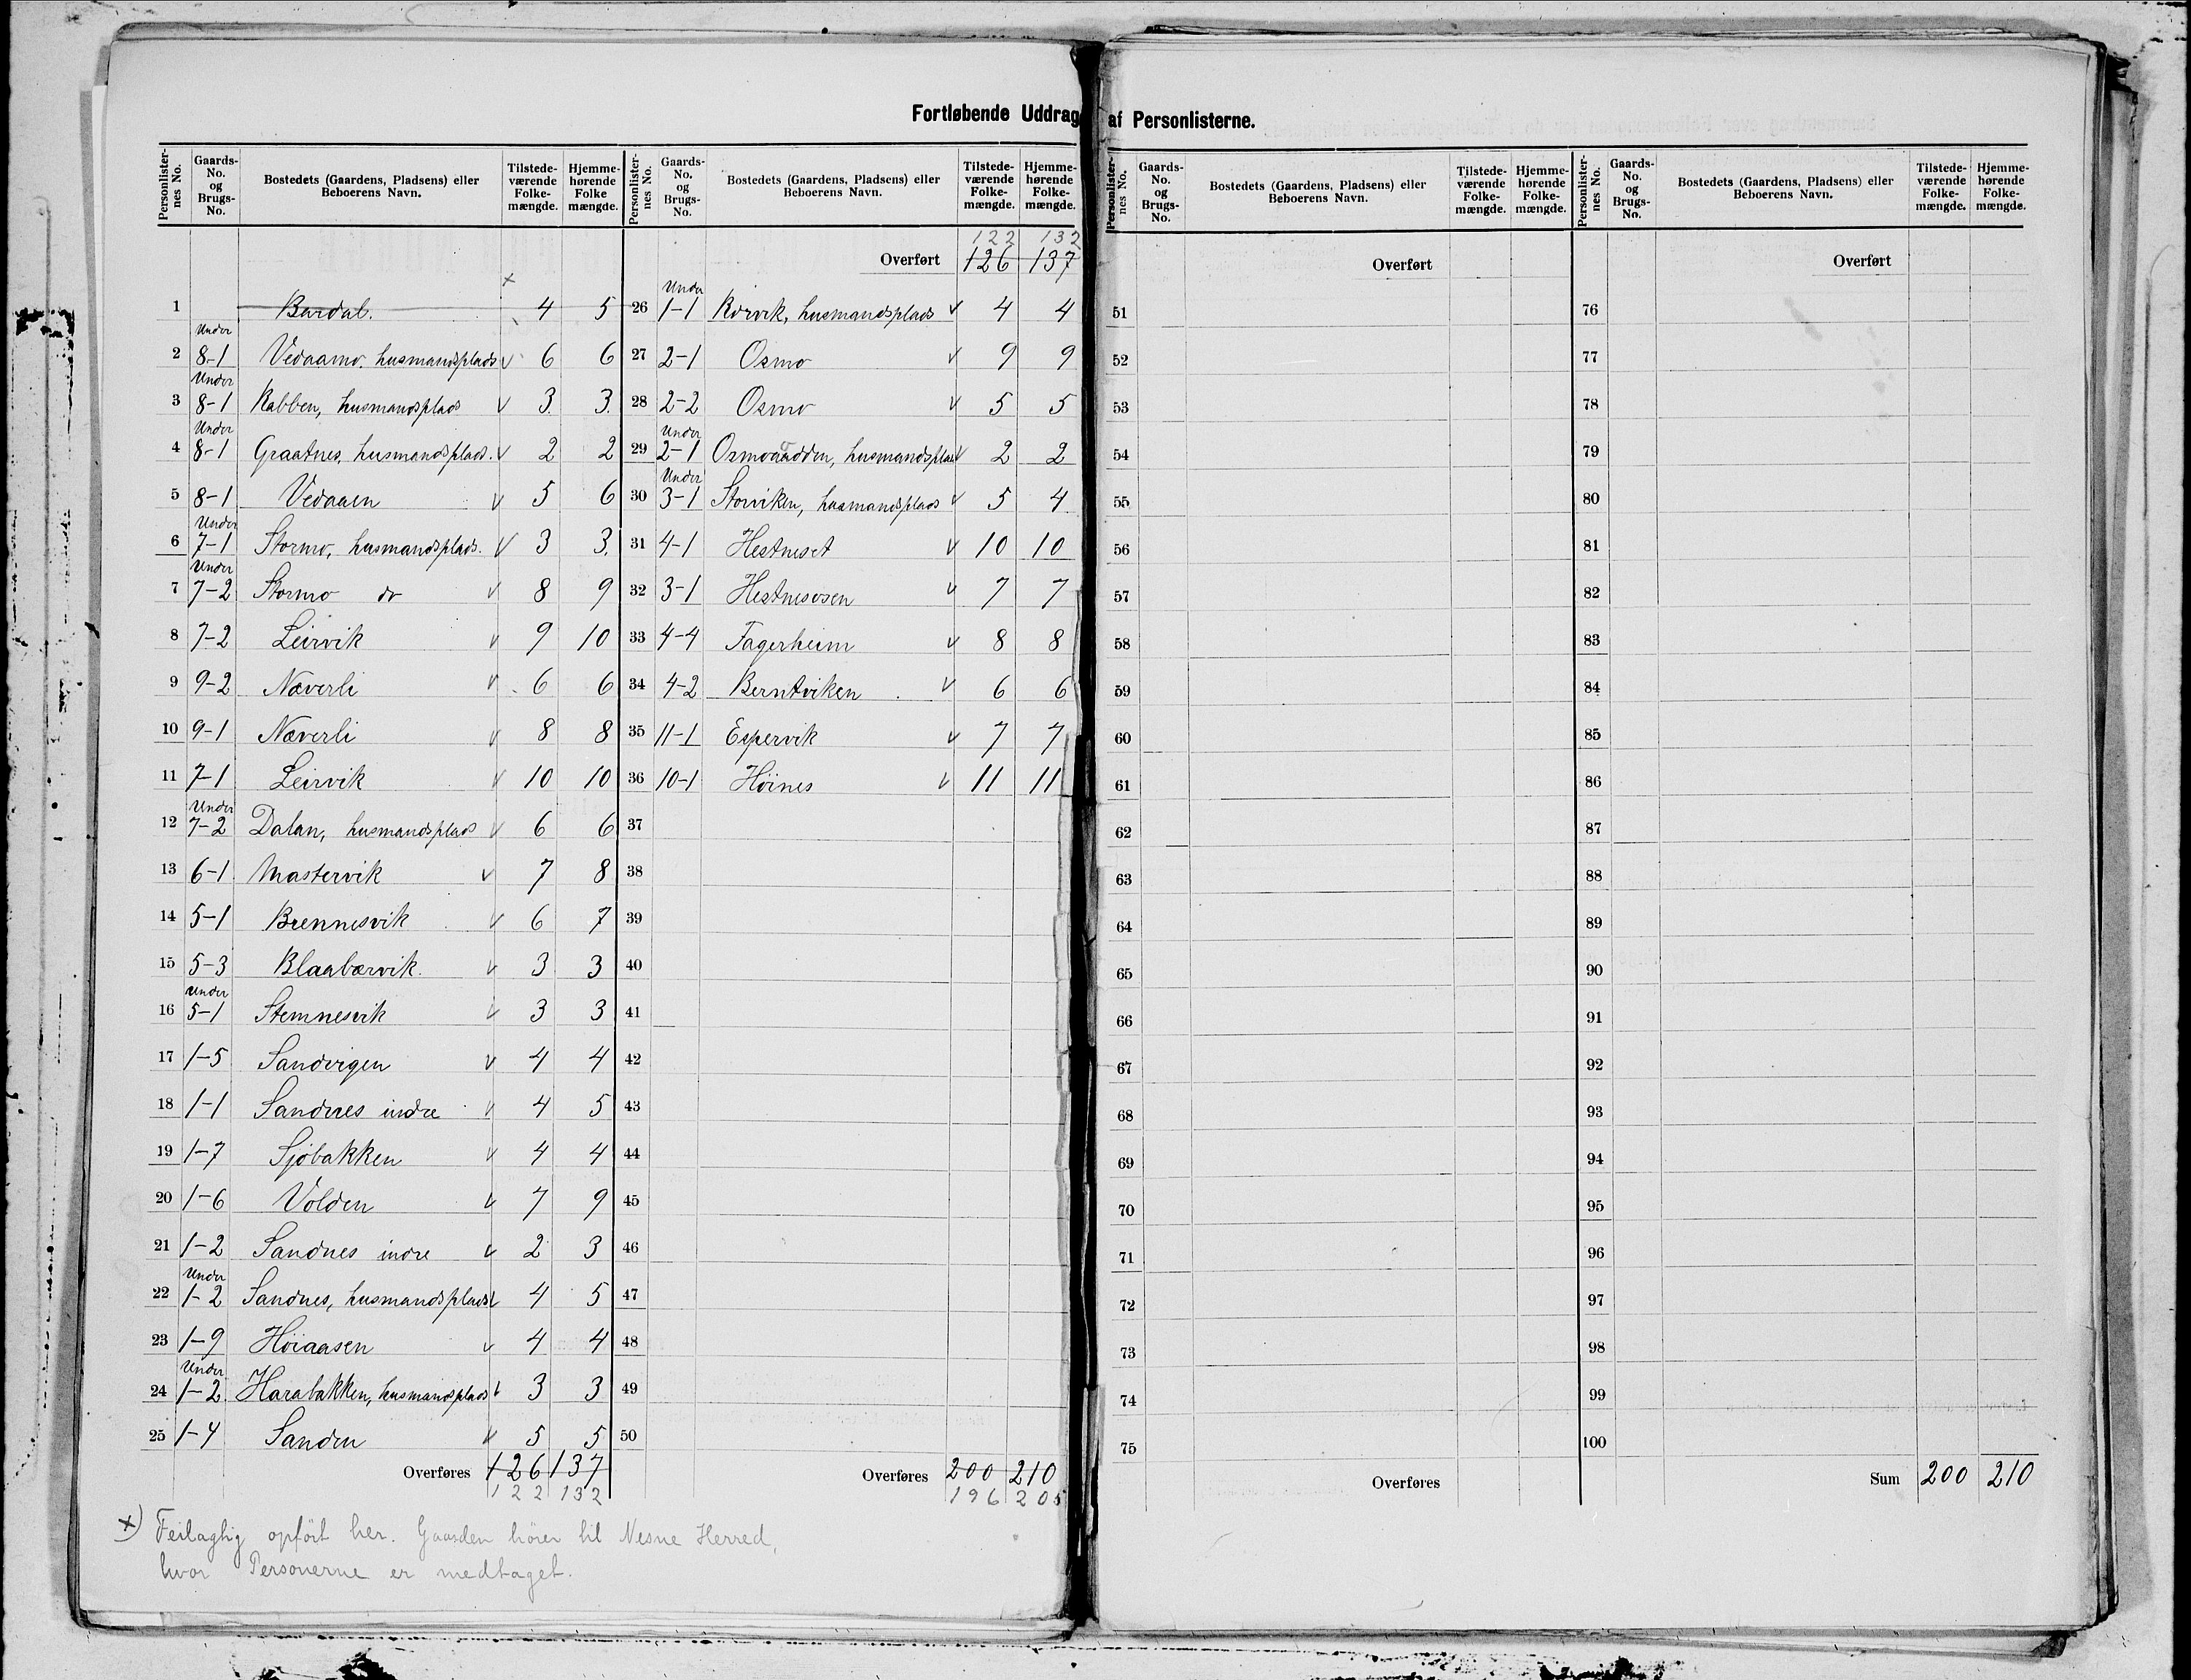 Fortløbende Uddrag af Personlisterne.
Personlister-nes No. Gaards-No. og Brugs-No. Bostedets (Gaardens, Pladsens) eller Beboerens Navn. Tilstede-værende Folke-mængde. Hjemme-hørende Folke mængde.
1 Bardal. 4 5
2 Under 8-1 Vedaamo. husmandsplads v 6 6
3 Under 8-1 Rabben, husmandsplads v 3. 3.
4 Under 8-1 Graatnes, husmandsplads. v 2 2
5 8-1 Vedaaen v 5 6
6 Under 7-1 Stormo, husmandsplads. v 3 3.
7 Under 7-2 Stormo do v 8 9
8 7-2 Leirvik v 9 10
9 9-2 Næverli v 6 6
10 9-1 Næverli v 8 8
11 7-1 Leirvik v 10 10
12 Under 7-2 Dalan, husmandsplads v 6 6
13 6-1 Mastervik v 7 8
14 5-1 Brennesvik v 6 7
15 5-3 Blaabærvik. v 3 3
16 Under 5-1 Stemnesvik v 3 3
17 1-5 Sandvigen v 4 4
18 1-1 Sandnes indre v 4 5
19 1-7 Sjøbakken v 4 4
20 1-6 Volden v 7 9
21 1-2 Sandnes indre v 2 3
22 Under 1-2 Sandnes, husmandsplads v 4 5
23 1-9 Høiaasen v 4 4
24 Under 1-2 Harabakken, husmandsplads v 3 3
25 1-4 Sanden v 5 5
Overføres 126 137
122 132
x) Feilagtig opført her. Gaarden hører til Nesne Herred,
hvor Personerne er medtaget.
Personlister-nes No. Gaards-No. og Brugs-No. Bostedets (Gaardens, Pladsens) eller Beboerens Navn. Tilstede-værende Folke-mængde. Hjemme-hørende Folke-mængde.
122 132
Overført 126 137
26 Under 1-1 Rørvik, husmandsplads v 4 4
27 2-1 Osmo v 9 9
28 2-2 Osmo v 5 5
29 Under 2-1 husmandsplads v 2 2
30 Under 3-1 Storviken, husmandsplads v 5 4
31 4-1 Hestneset v 10 10
32 3-1 Hestnesosen v 7 7
33 4-4 Fagerheim v 8 8
34 4-2 Berntviken v 6 6
35 11-1 Espervik v 7 7
36 10-1 Høines v 11 11
37
38
39
40
41
42
43
44
45
46
47
48
49
50
Overføres 200 210
196 205
Personlister-nes No. Gaards-No. og Brugs-No. Bostedets (Gaardens, Pladsens) eller Beboerens Navn. Tilstede-værende Folke-mængde. Hjemme-hørende Folke-mængde.
Overført
51
52
53
54
55
56
57
58
59
60
61
62
63
64
65
66
67
68
69
70
71
72
73
74
75
Overføres
Personlister-nes No. Gaards-No. og Brugs-No. Bostedets (Gaardens, Pladsens) eller Beboerens Navn. Tilstede-værende Folke-mængde. Hjemme-hørende Folke-mængde.
Overført
76
77
78
79
80
81
82
83
84
85
86
87
88
89
90
91
92
93
94
95
96
97
98
99
100
Sum 200 210